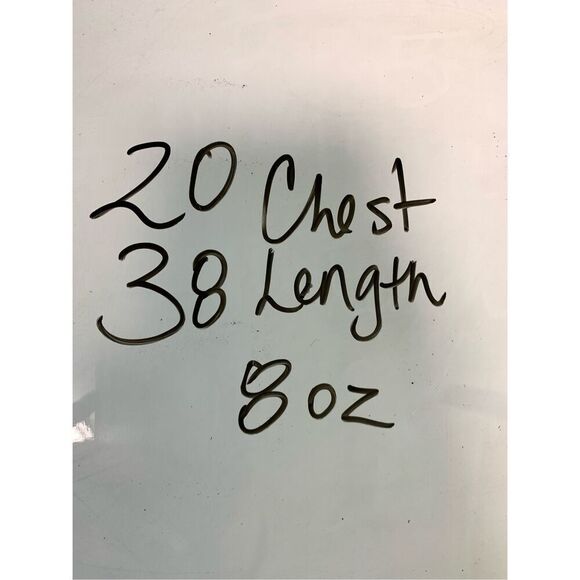 20 Chest
38 Length
8 oz